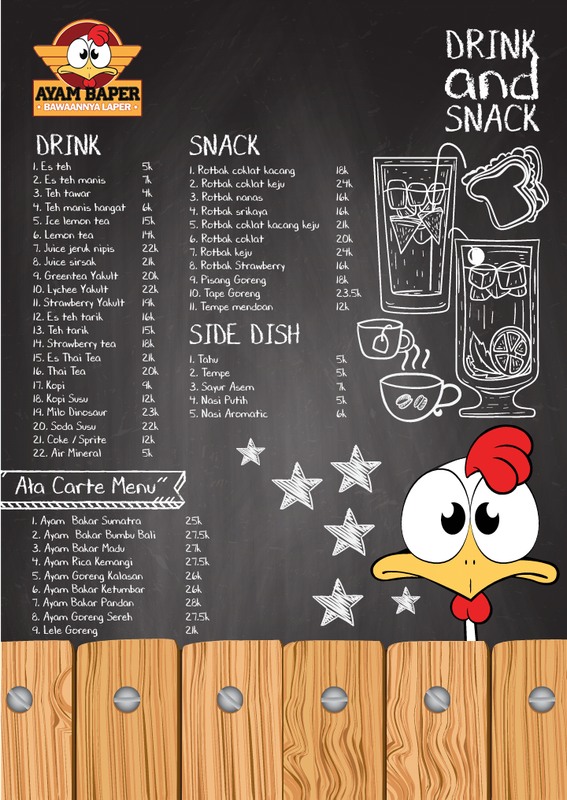 AYAM BAPER
BAWAANNYA LAPER
DRINK
and
SNACK
DRINK
1. Es teh 5k
2. Es teh manis 7k
3. Teh tawar 4k
4. Teh manis hangat 6k
5. Ice lemon tea 15k
6. Lemon tea 14k
7. Juice jeruk nipis 22k
8. Juice sirsak 21k
9. Greentea Yakult 20k
10. Lychee Yakult 22k
11. Strawberry Yakult 19k
12. Es teh tarik 16k
13. Teh tarik 15k
14. Strawberry tea 18k
15. Es Thai Tea 21k
16. Thai Tea 20k
17. Kopi 9k
18. Kopi Susu 12k
19. Milo Dinosaur 23k
20. Soda Susu 22k
21. Coke / Sprite 12k
22. Air Mineral 5k
SNACK
1. Rotbak coklat kacang 18k
2. Rotbak coklat keju 24k
3. Rotbak nanas 16k
4. Rotbak srikaya 16k
5. Rotbak coklat kacang keju 21k
6. Rotbak coklat 20k
7. Rotbak keju 24k
8. Rotbak Strawberry 16k
9. Pisang Goreng 18k
10. Tape Goreng 23.5k
11. Tempe mendoan 12k
SIDE DISH
1. Tahu 5k
2. Tempe 5k
3. Sayur Asem 7k
4. Nasi Putih 5k
5. Nasi Aromatic 6k
"Ala Carte Menu"
1. Ayam Bakar Sumatra 25k
2. Ayam Bakar Bumbu Bali 27.5k
3. Ayam Bakar Madu 27k
4. Ayam Rica Kemangi 27.5k
5. Ayam Goreng Kalasan 26k
6. Ayam Bakar Ketumbar 26k
7. Ayam Bakar Pandan 28k
8. Ayam Goreng Sereh 27.5k
9. Lele Goreng 21k